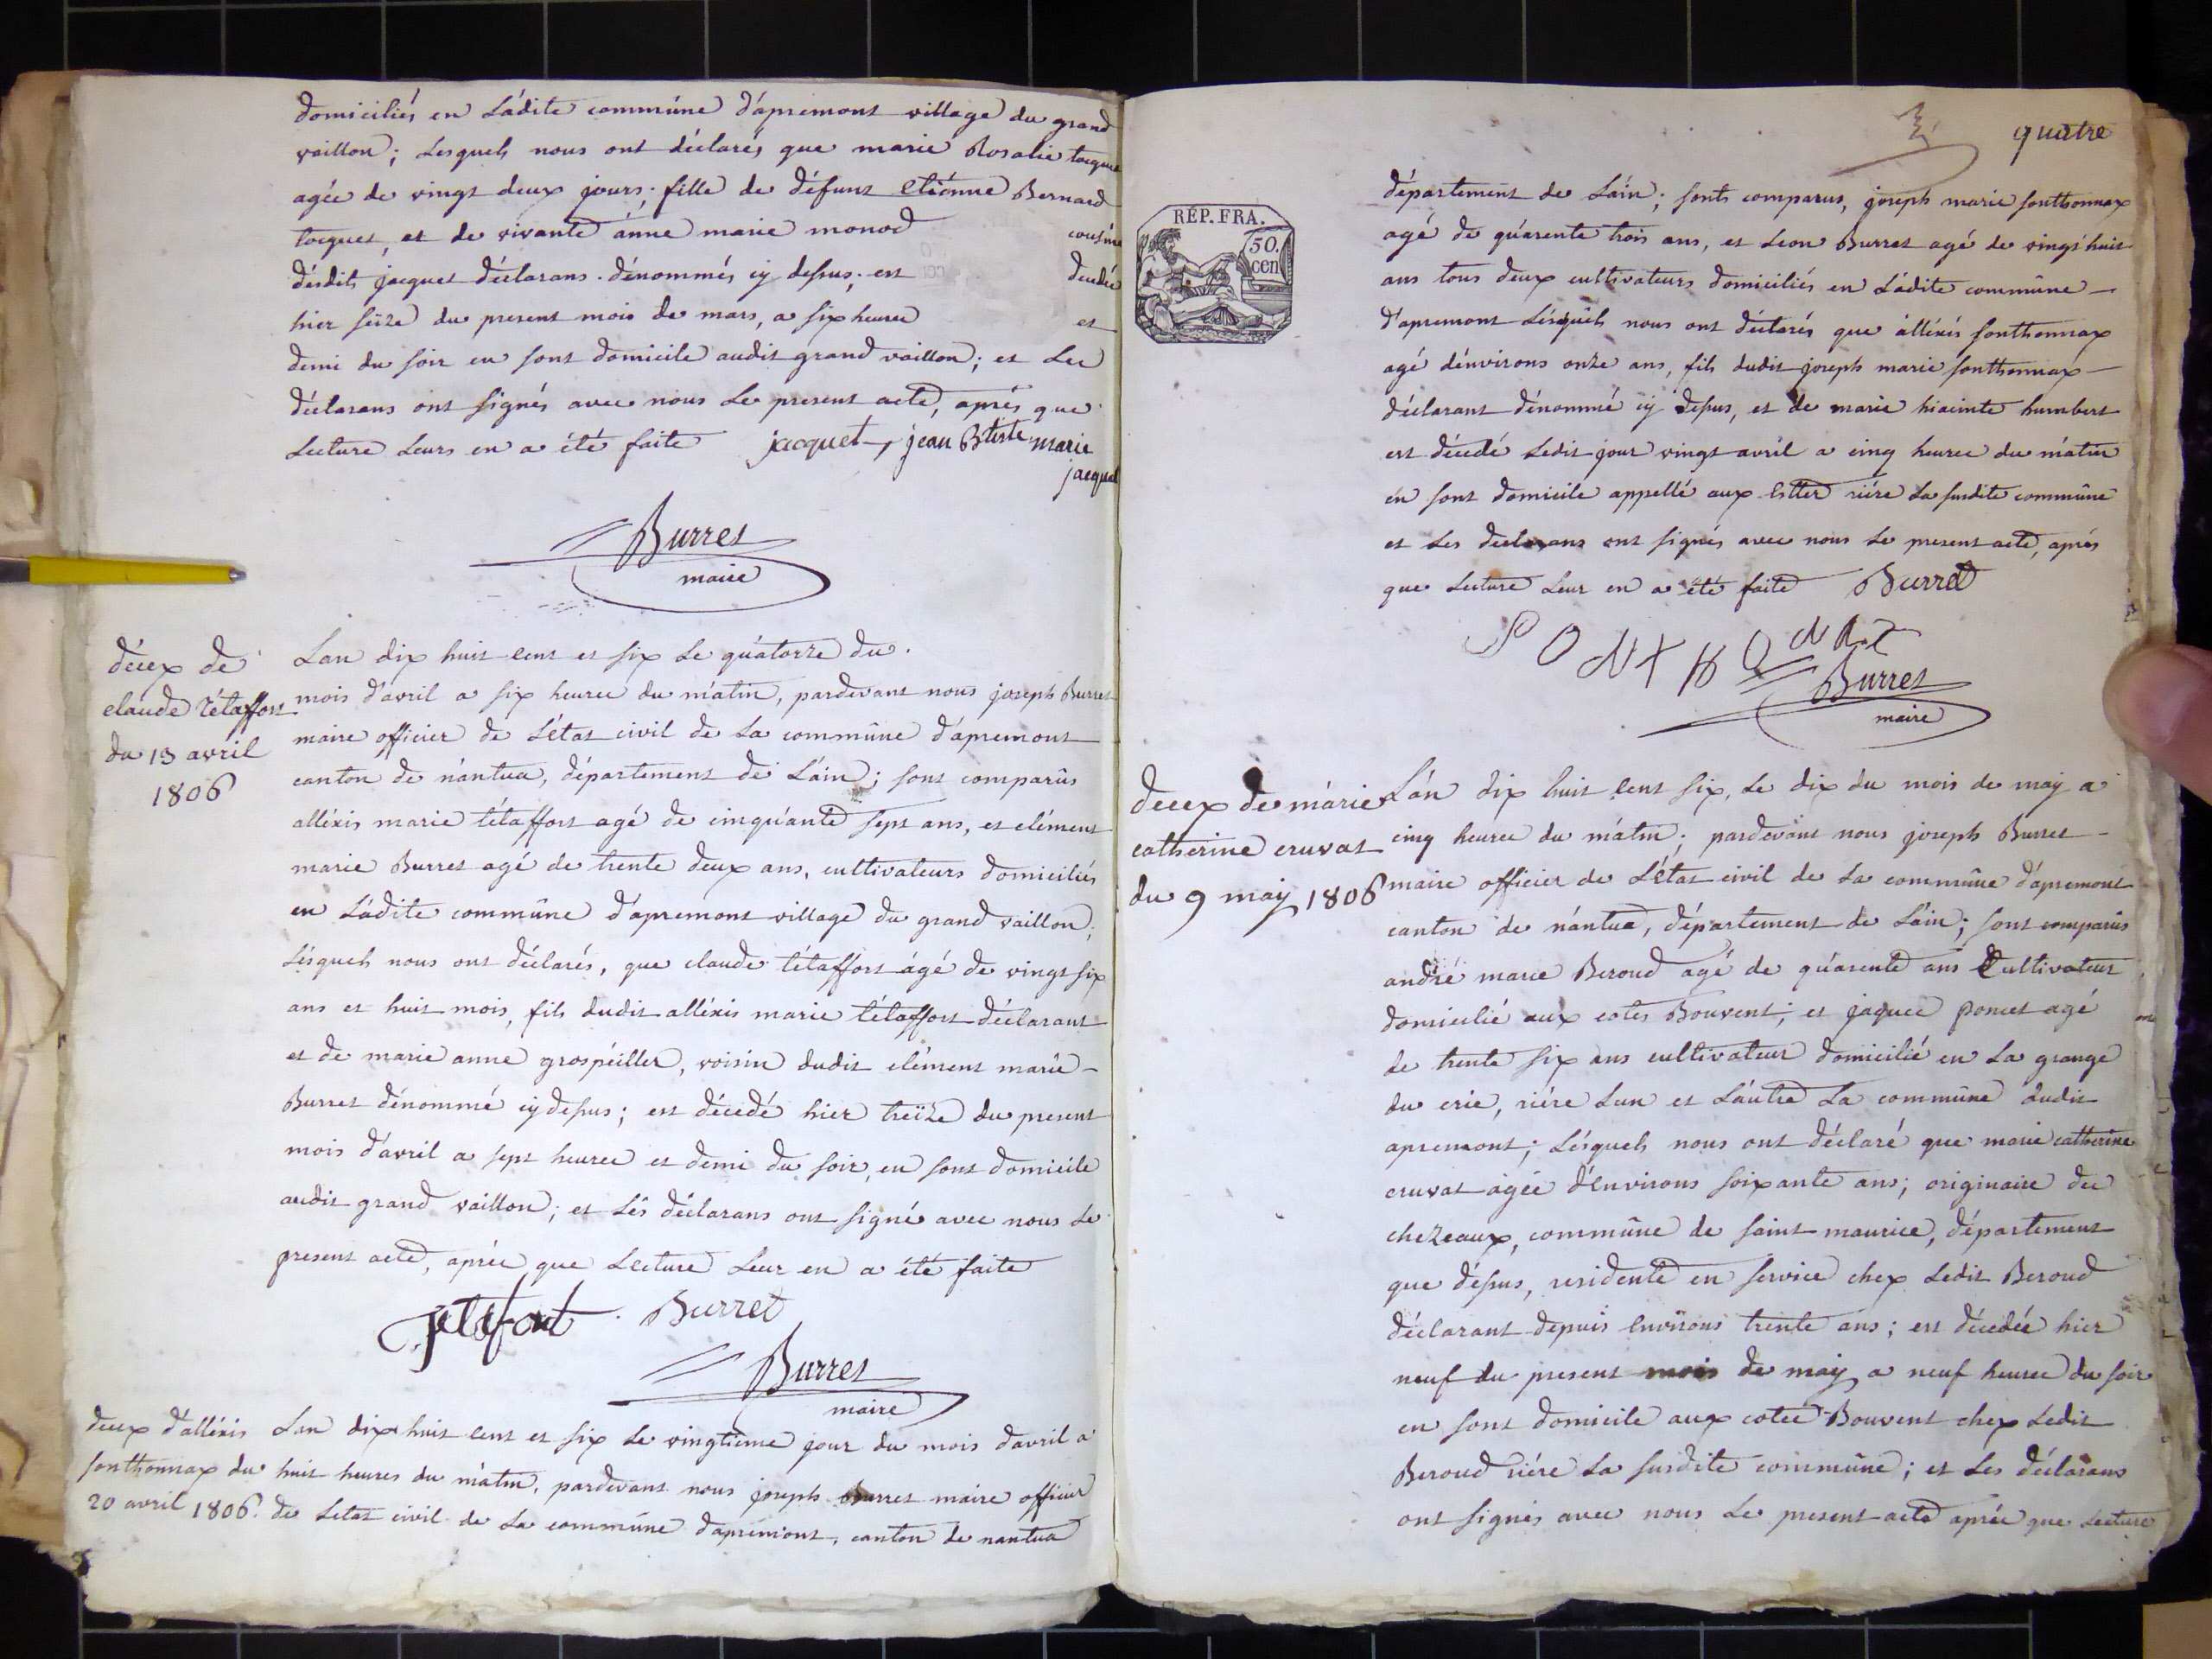 domiciliés en Ládite commúne d'ápremont village du grand
vaillon; Lesquels nous ont déclarés que marie Rosalie
agée de vingt deux jours; fille de défunt etiénne Bernard
et de vivante ánne marie monod cousine
désdits jacquet déclarans dénommés cy dessus; est
hier seize du present mois de mars, a six heures et
demi du soir en sont domicile audit grand vaillon; et Les
déclarans ont signés avec nous Le present acte, aprés que
Lecture Leurs en a été faite jacquet, jean Btiste marie
jacquet
Burret
maire
décex de
claude tétaffort
du 13 avril
1806
Lan dix huit cent et six Le quátorze du
mois d'ávril a six heures du mátin, pardevant nous joseph Burret
maire officier de Létat civil de La commúne d'ápremont
canton de nántua, département de Láin; sont comparûs
alléxis marie tétaffort agé de cinquánte sept ans, et clément
marie Burret agé de trente deux ans, cultivateurs domiciliés
en Ládite commúne d'ápremont village du grand vaillon;
Lésquels nous ont déclarés, que claude tétaffort ágé de vingt six
ans et huit mois, fils dudit alléxis marie tétaffort déclárant
et de marie anne grospéiller, voisin dudit clément marie
Burret dénommé cy dessus; est décedé hier treize du present
mois d'ávril a sept heures et demi du soir, en sont domicile
audit grand vaillon; et Lés déclarans ont signé avec nous Le
present acte, aprés que Lecture Leur en a été faite
Burret
Burret
maire
decex d'alléxis
sonthonnax du
20 avril 1806.
Lan dix huit cent et six Le vingtieme jour du mois davril a
huit heures du mátin, pardevant nous joseph Burret maire officier
de Letat civil de La commúne dapremont, canton de nantua
quatre
RÉP. FRA.
50.
cen
département de Láin; sonts comparus, joseph marie sonthonnax
agé de quárente trois ans, et Leon Burret agé de vingt huit
ans tous deux cultivateurs domiciliés en Ládite commúne
d'apremont Lésquels nous ont déclarés que álléxis sonthonnax
agé dénvirons onze ans, fils dudit joseph marie sonthonnax
déclarant dénommé cy dessus, et de marie hiacinte humbert
est décedé Ledit jour vingt avril a cinq heures du mátin
en sont domicile appellé aux riére La susdite commúne
et Les declarans ont signés avec nous Le present acte, aprés
que Lecture Leur en a été faite Burret
SONTHONAX
Burret
maire
decex de márie
catherine cruvat
du 9 may 1806
Lán dix huit cent six, Le dix du mois de may a
cinq heures du mátin; pardevánt nous joseph Burret
maire officier de Létat civil de La commúne d'ápremont
canton de nántua, département de Láin; sont comparûs
andré marie Beroud agé de quárente ans Cultivateur
domicilié aux cotes Bouvent; et jaques poncet agé
de trente six ans cultivateur domicilié en La grange
du crie, riére Lun et Láutre La commúne dudit
apremont; Lésquels nous ont déclaré que marie catherine
cruvat ágée dénvirons soixante ans; originaire du
chezeaux, commúne de saint maurice, département
que déssus, residente en service chex Ledit Beroud
déclarant depuis environs trente ans; est décedée hier
neuf du present mois de may a neuf heures du soir
en sont domicile aux cotes Bouvent chex Ledit
Beroud riére La susdite commúne; et Les déclarans
ont signés avec nous Le present acte aprés que Lecture